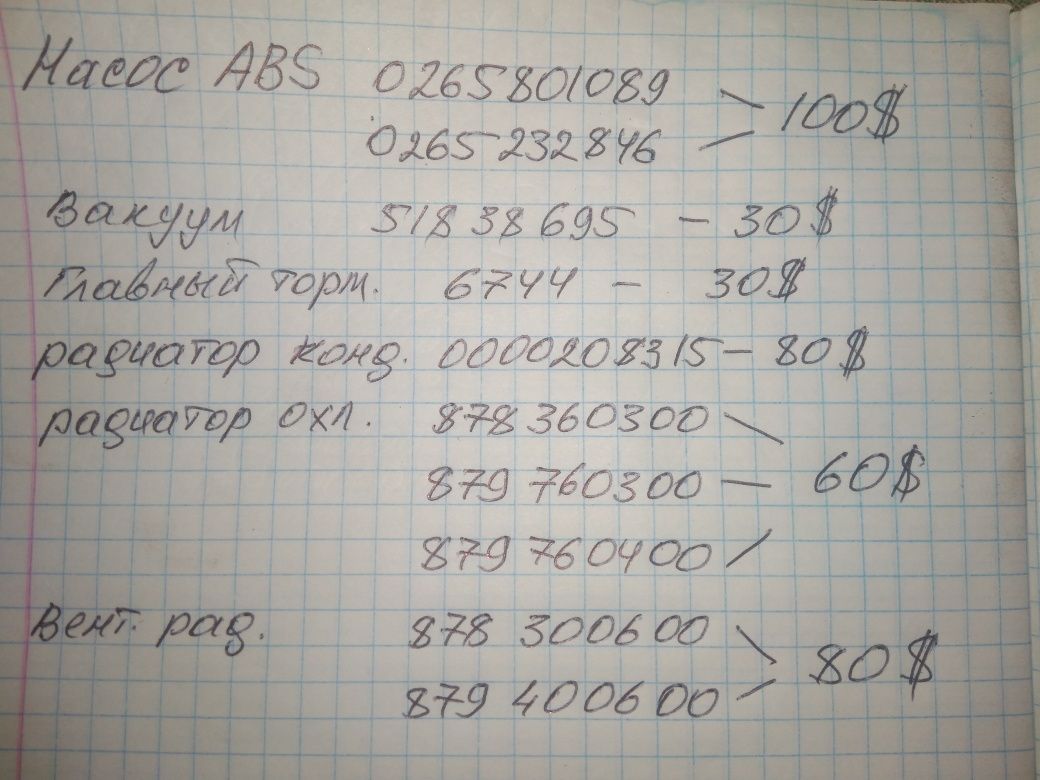 Насос ABS 0265801089
0265232846 100$
Вакуум 51838695 - 30$
Главный торм. 6744 - 30$
радиатор конд. 0000208315 - 80$
радиатор охл. 878360300
879760300 - 60$
879760400
Вент. рад. 878 300600
879 400600 80$